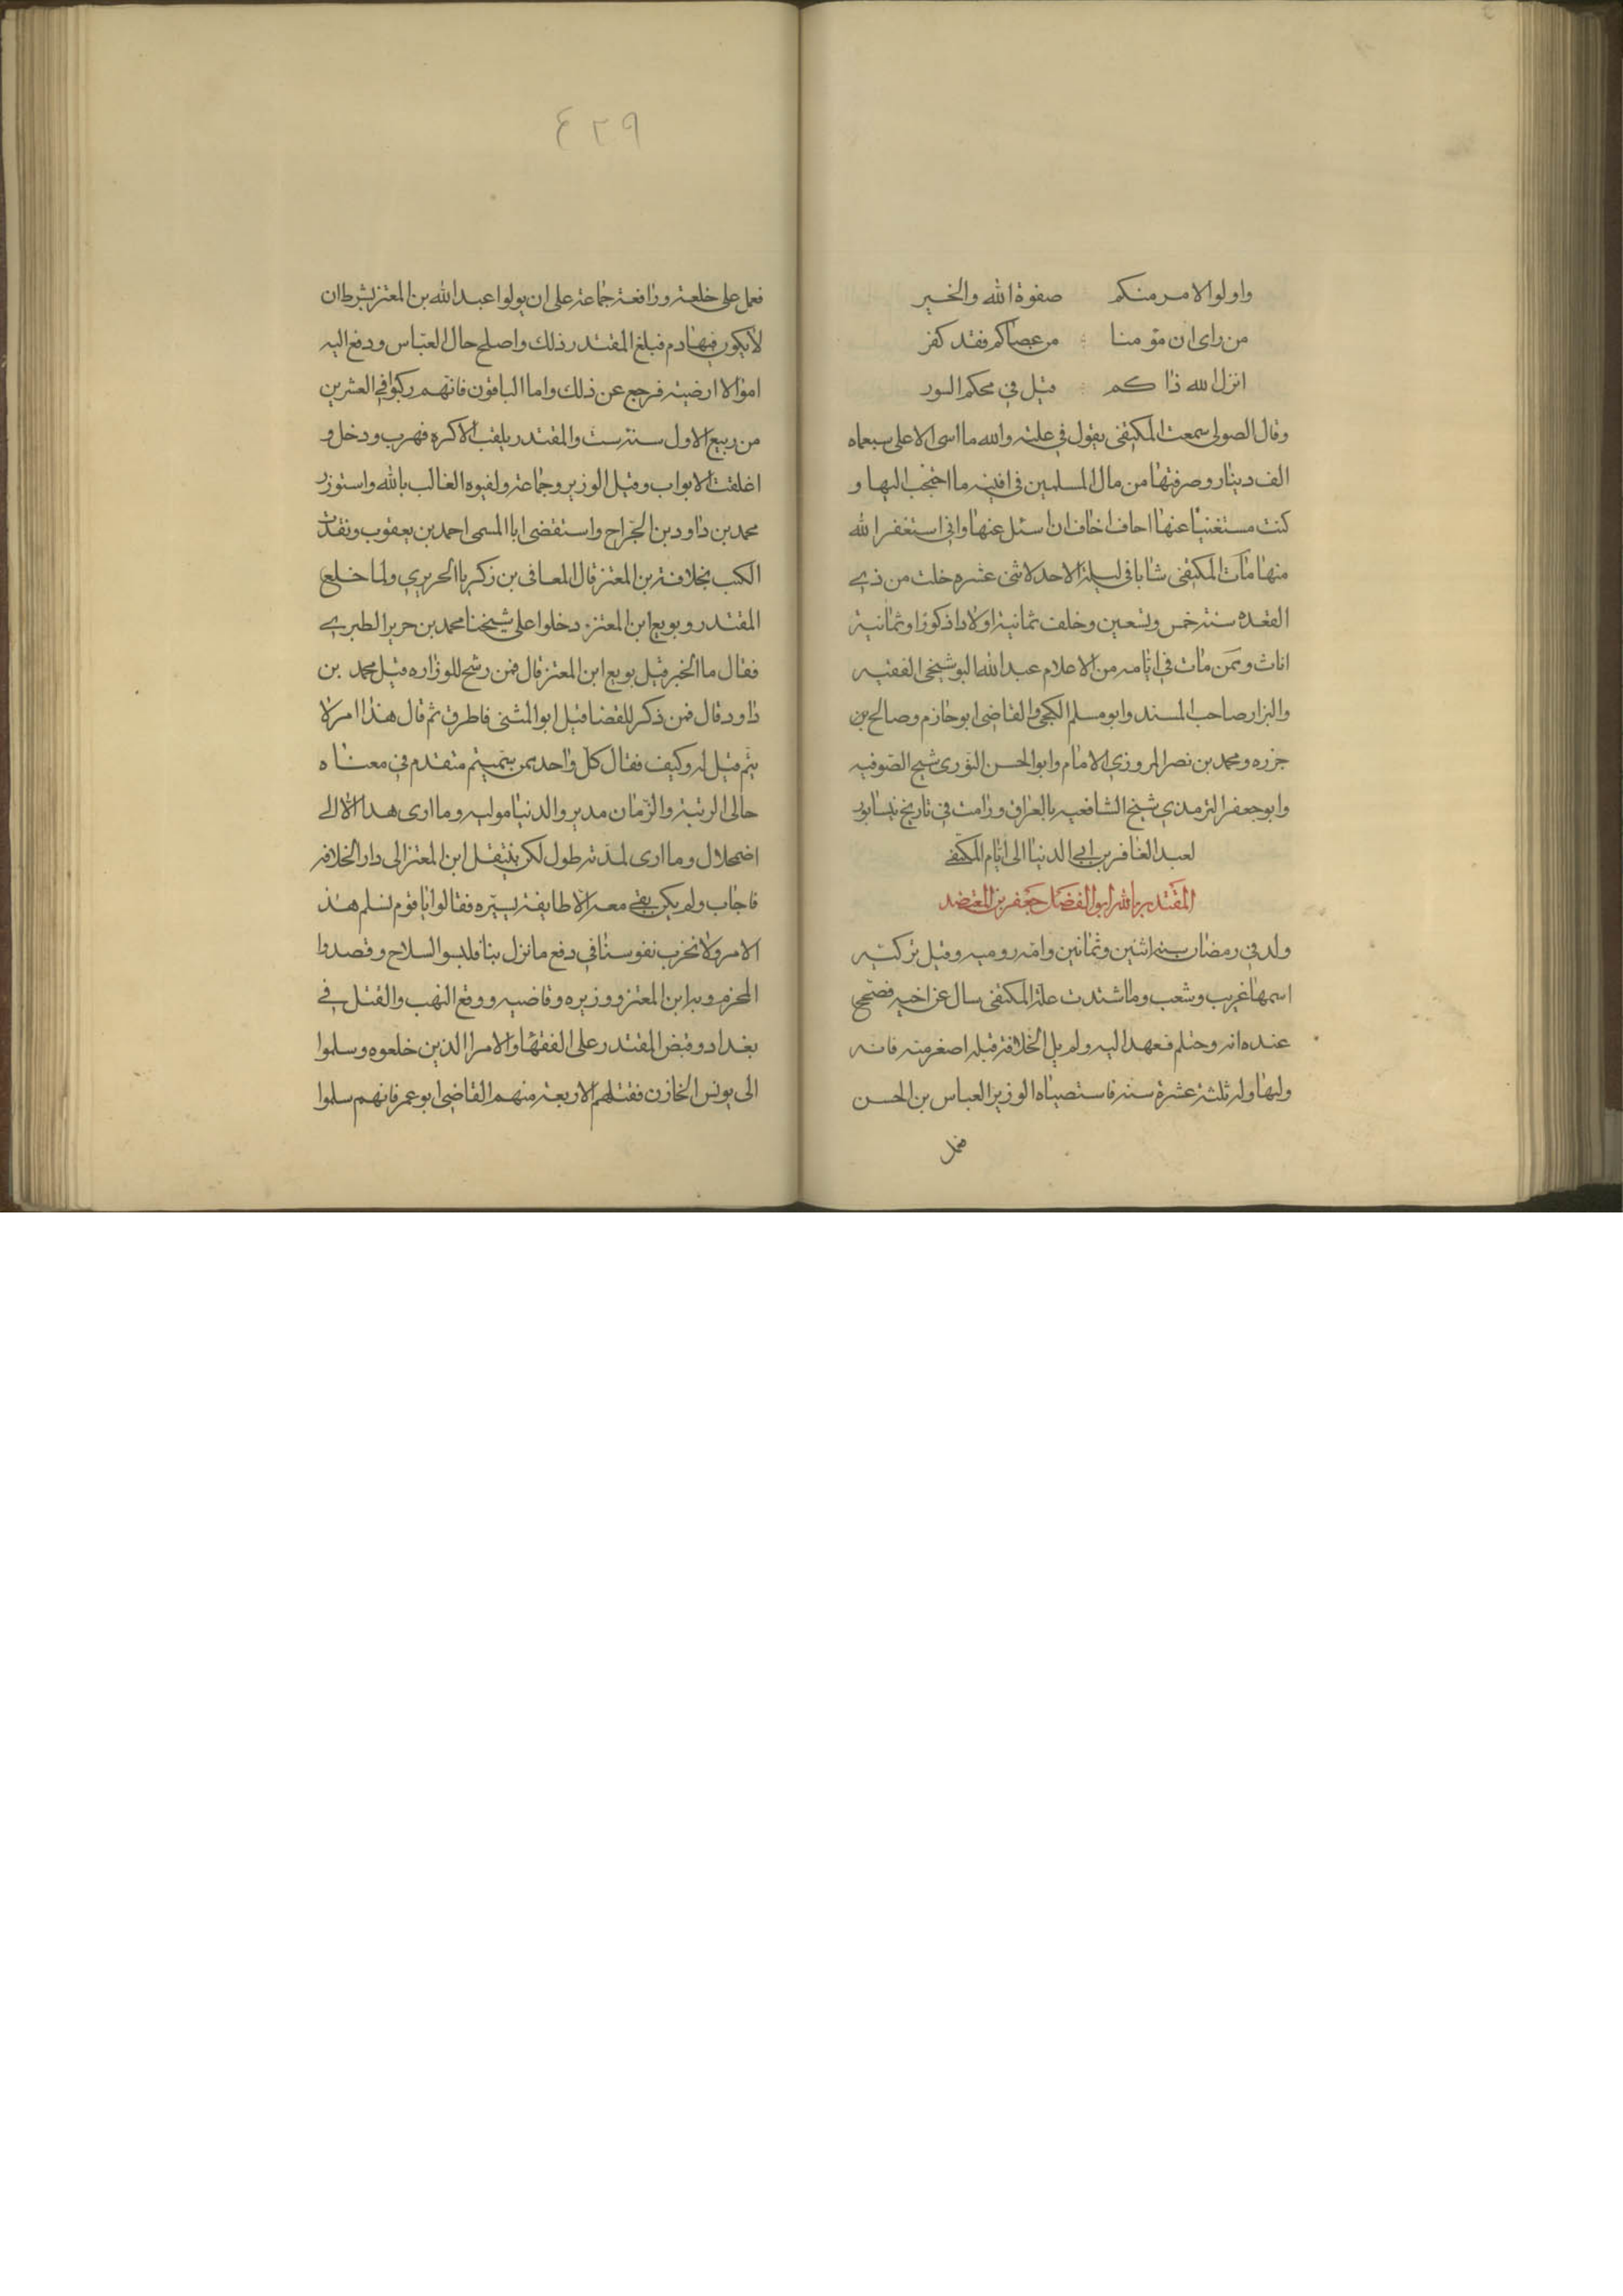 واولوا الامر منكم صفوة الله والخير
من راى ان مؤمنا من عصاكم فقد كفر
انزل الله ذا كم قيل في محكم السور
وقال الصولى سمعت المكتفى يقول في علته والله ما اسى الا على سبعماه
الف دينار وصرفتها من مال المسلمين فى ابنيه ما احتجب اليها و
كنت مستغنيا عنها احاف اخاف ان اسئل عنها وانى استغفر الله
منها مات المكتفى شابا فى ليلة الاحد لاثنى عشره خلت من ذي
القعده سنة خمس وتسعين وخلف ثمانية اولادا ذكورا وثمانية
اناث وممن مات في ايامه من الاعلام عبد الله البوشيخى الفقيه
والبزار صاحب المسند وابو مسلم الكجى والقاضى ابو حازم وصالح بن
جزره ومحمد بن نصر المروزي الامام وابو الحسن النورى شيخ الصوفيه
وابو جعفر الترمذي شيخ الشافعيه بالعراق ورامت في تاريخ نيسابور
لعبد الغافر بن ابي الدنيا الى ايام المكتفى
المقتدر بالله ابو الفضل جعفر بن المعتضد
ولد في رمضان سنه اثنين وثمانين وامه روميه وقيل تركيه
اسمها غريب وشعب وما اشتدت علة المكتفى سال عن اخيه فصح
عنده انه وحتلم فعهد اليه ولم يل الخلافة قبله اصغر منه فانه
وليها وله ثلثة عشرة سنه فاستصباه الوزير العباس بن الحسن
فعمل
٤٢٩
فعمل على خلعه ورافعة جماعة على ان يولوا عبد الله بن المعتز بشرط ان
لا يكون فيها دم فبلغ المقتدر ذلك واصلح حال العباس ودفع اليه
اموالا ارضيته فرجع عن ذلك واما الباقون فانهم ركبوا في العشرين
من ربيع الاول سنة ست والمقتدر يلقب الاكره فهرب ودخل و
اغلقت الابواب وقيل الوزير وجماعة ولقبوه الغالب بالله واستوزر
محمد بن داود بن الجراح واستقضى ابا المسمى احمد بن يعقوب ونفذت
الكتب بخلافة بن المعتز قال المعافى بن زكريا الحريري ولما خلع
المقتدر وبويع ابن المعتز دخلوا على شيخنا محمد بن حرير الطبري
فقال ما الخبر قيل بويع ابن المعتز قال فمن رشح للوزاره قيل محمد بن
داود قال فمن ذكر للقضا قيل ابو المثنى فاطرق ثم قال هذا امر لا
يتم قيل له وكيف فقال كل واحد ممن سميتم متقدم في معناه
حالى الرتبة والزمان مدبر والدنيا موليه وما ارى هدا الا الى
اضمحلال وما ارى لمدته طول لكن ينتقل ابن المعتز الى دار الخلافه
فاجاب ولم يكن بقى معه الا طايفة يسيره فقالوا يا قوم نسلم هذ
الامر ولا نخرب نفوسنا في دفع ما نزل بنا فلبسوا السلاح وقصدوا
المخرم وبه ابن المعتز ووزيره وقاضيه ووقع النهب والقتل في
بغداد وقبض المقتدر على الفقها والامرا الذين خلعوه وسلموا
الى يونس الخازن فقتلهم الا ربعة منهم القاضى ابو عمر فانهم سلموا